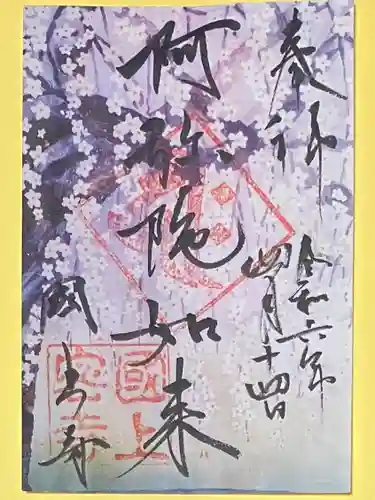 奉拝
令和六年
四月十四日
阿弥陀如来
国上寺
国上